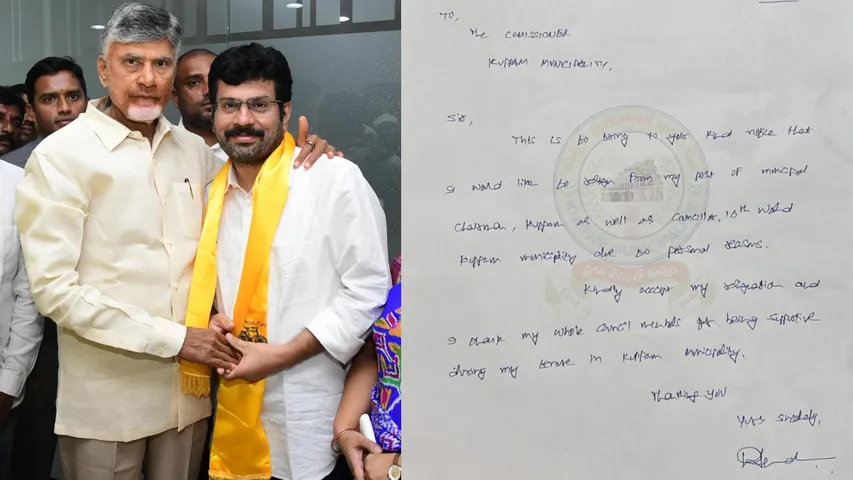 TO,
The COMISSIONER
KUPPAM MUNICIPALITY,
Sir,
This is to bring to your kind notice that
I would like to resign from my post of municipal
Chairman, Kuppam as well as Councillor, 16th ward
Kuppam municipality due to personal reasons.
Kindly accept my resignation and
I thank my whole council members for being supportive
during my tenure in Kuppam municipality.
Thanking you
Yours sincerely,